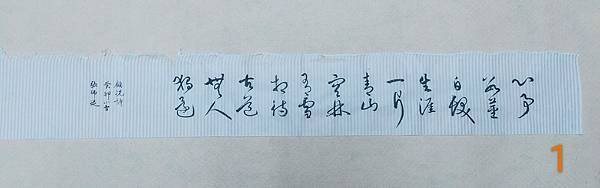 心事
數莖
白髮
生涯
一片
青山
空林
有雪
相待
古道
無人
獨還
顧況詩
癸卯
1